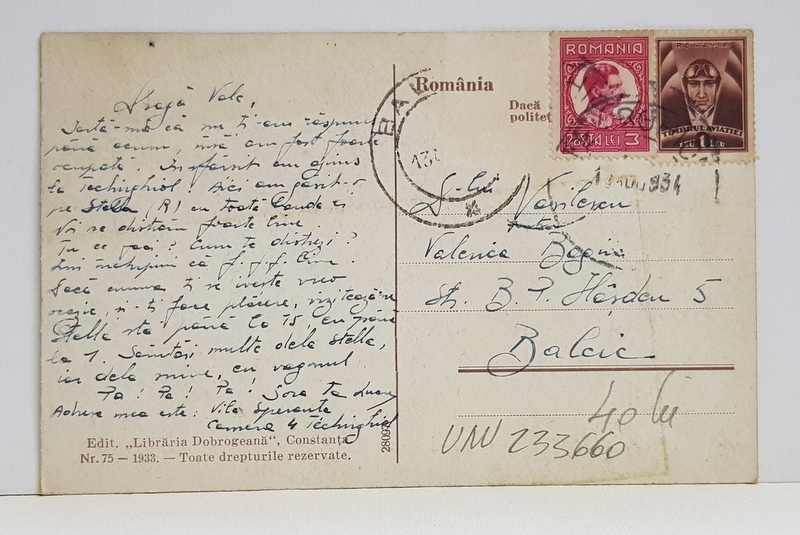 Dragă Vale,
Iartă-mă că nu ți-am răspuns
până acum, însă am fost foarte
ocupată. În sfârșit am ajuns
la Techirghiol. Aici am găsit-o
pe Stella (R) cu toată banda ei
Noi ne distrăm foarte bine
Tu ce faci? Cum te distrezi?
Îmi închipui că f. f. f. bine.
Dacă cumva ți se ivește vreo
ocazie, și-ți face plăcere, vizitează-ne
Stella stă până la 15, eu până
la 1. Sănătăți multe dela Stella,
iar dela mine, cu vagonul.
Pa! Pa! Pa! Sora ta
Adresa mea este: Vila Speranta
Camera 4 Techirghiol
Edit. „Librăria Dobrogeană“, Constanța
Nr. 75 — 1933. — Toate drepturile rezervate.
România
Dacă
politeț
ROMANIA
POSTA LEI 3
ROMANIA
TIMBRUL AVIATIEI
1
UN LEU
BA
130
934
D-lui Vasilescu
pentru
Valerica
Str. B. P. Hașdeu 5
Balcic
40 lei
UNU 233660
2809